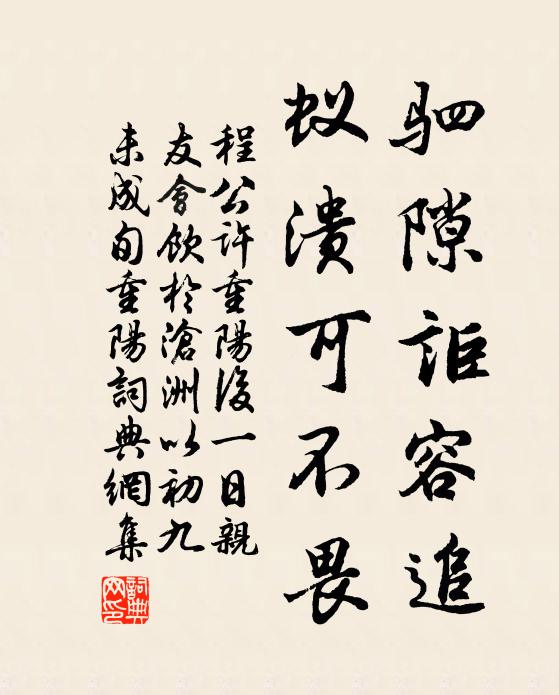 驷隙詎容追
蚁溃可不畏
程公許重陽後一日親
友會飲於滄洲以初九
未成旬重陽詞典網集
詞典
网印